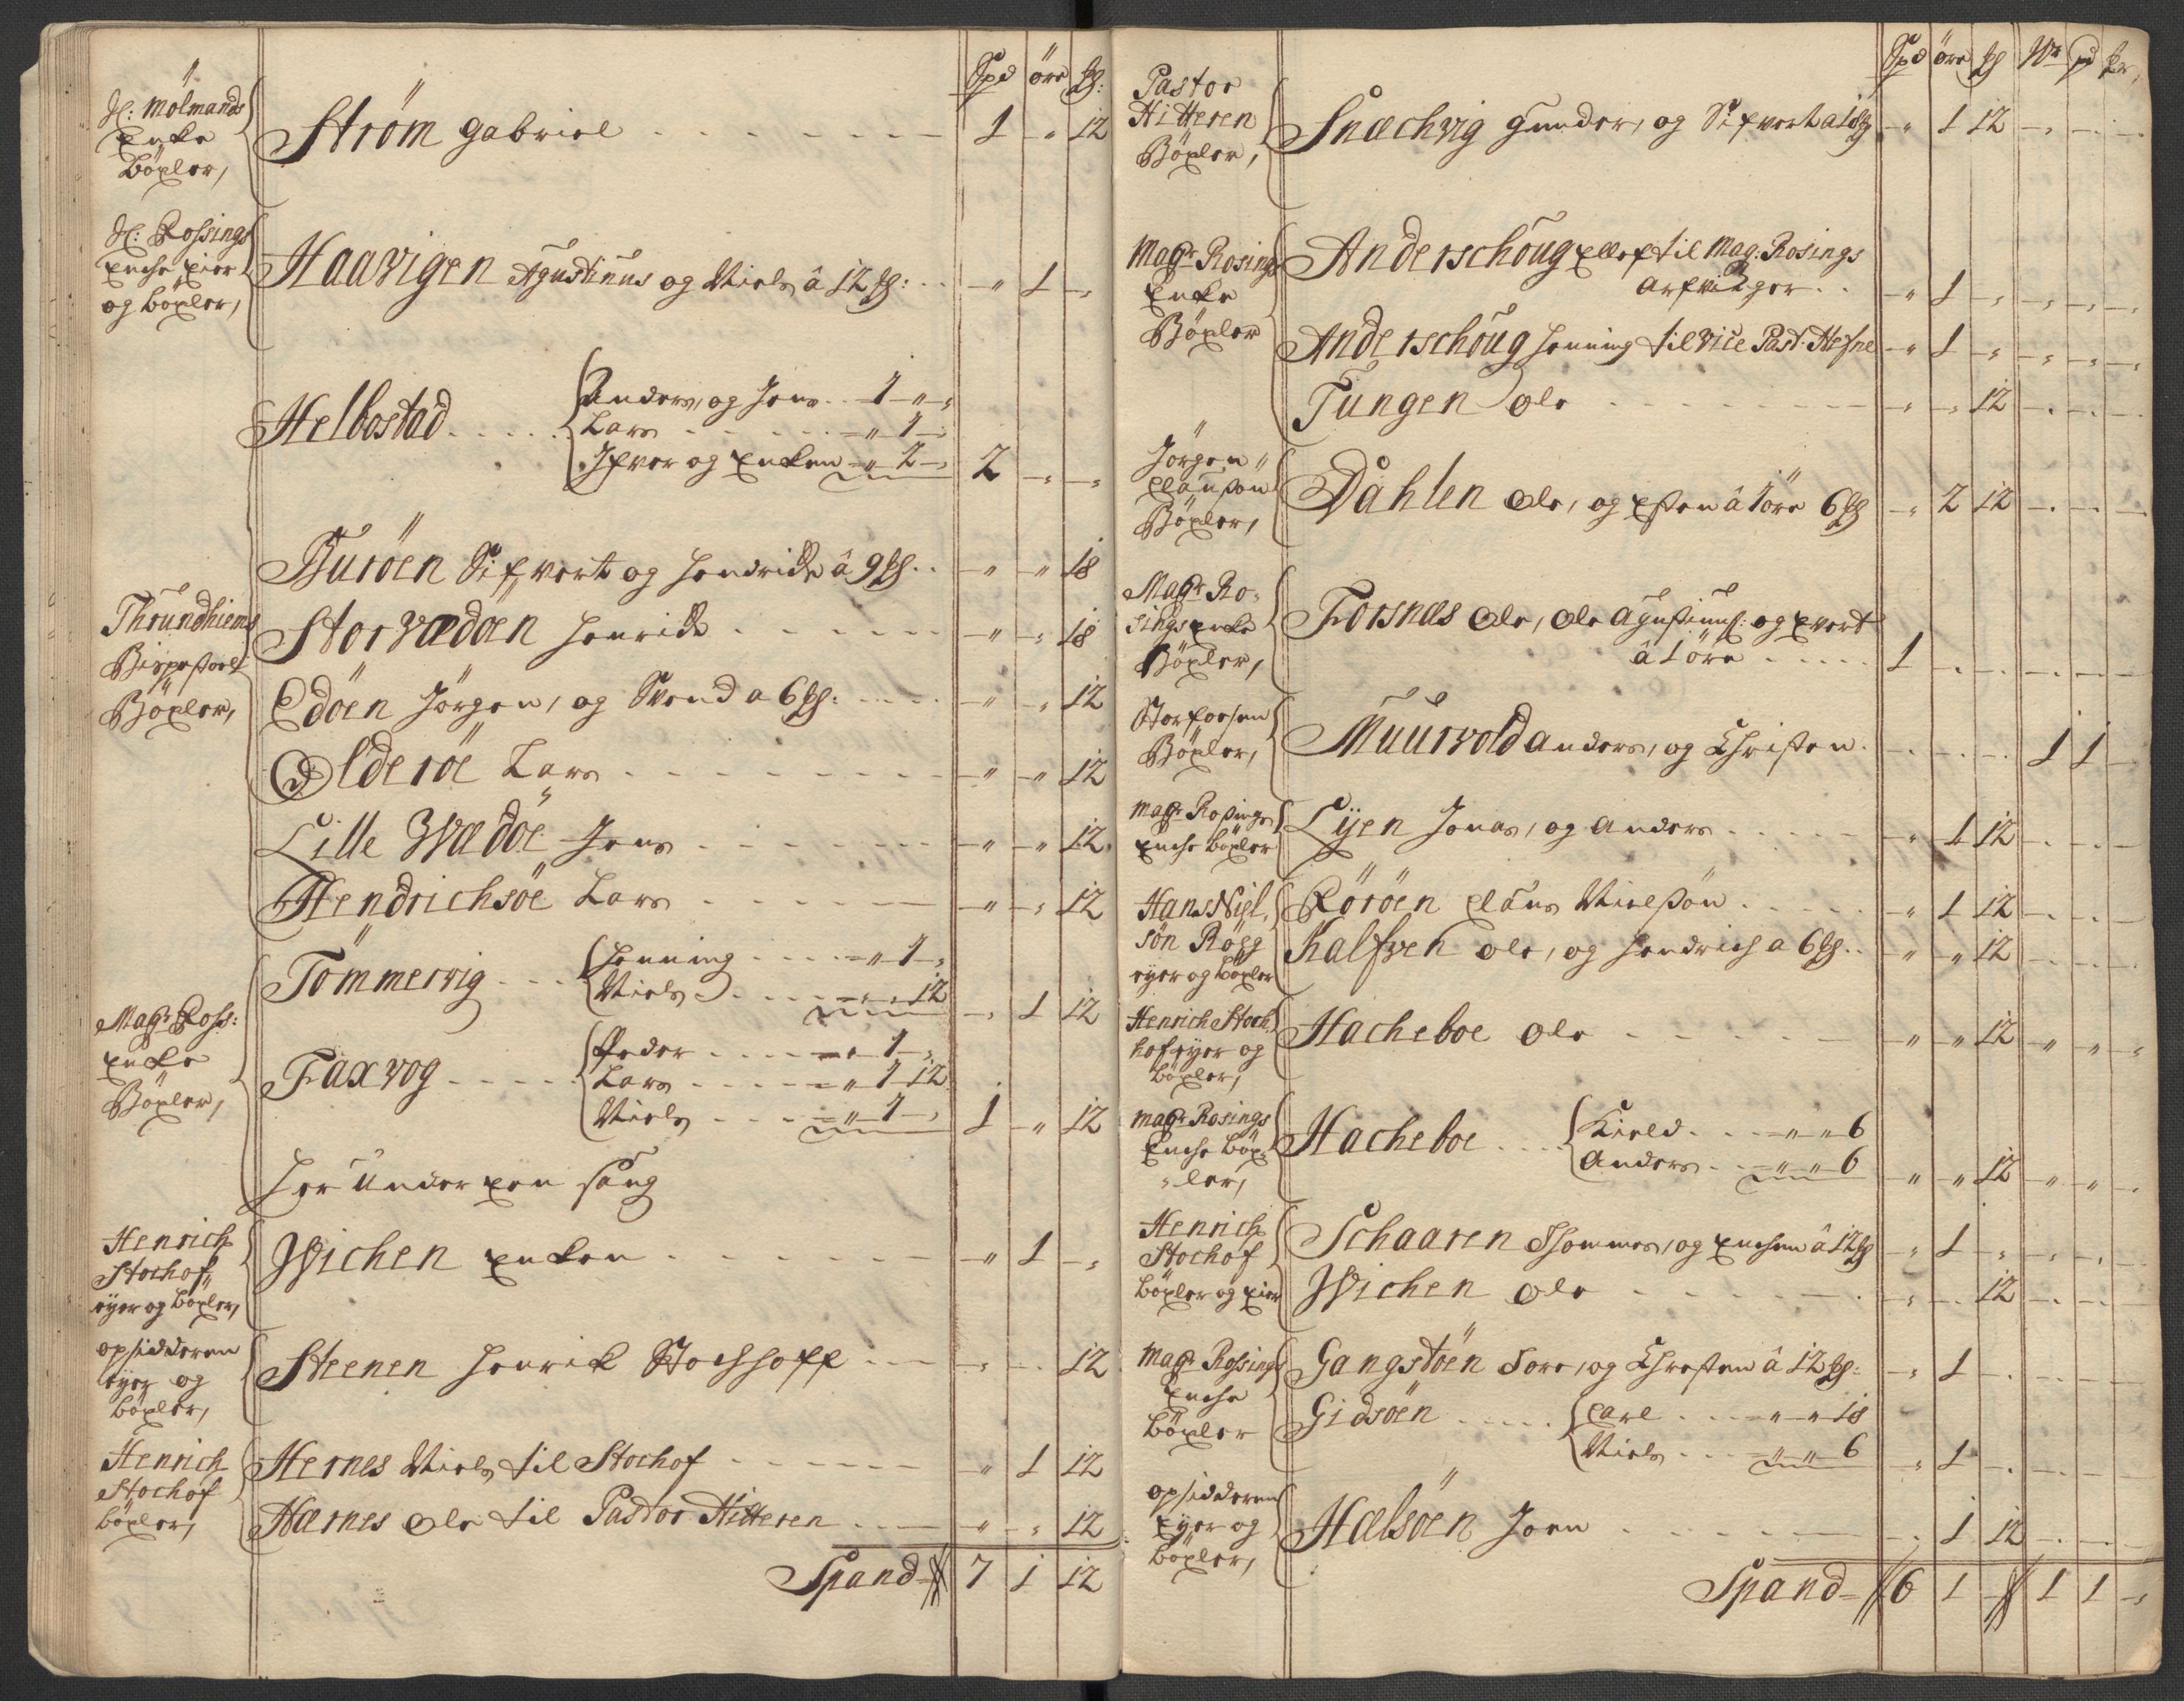 Spd öre ₰:
H: Mölmands
Enke
böxler,
Ström Gabriel 1 - 12
H: Rossings
Enche Eier
og böxler,
Haavigen Agustinus og Niels â 12 ₰: - 1 -
Helbostad Anders, og Jens 1 - -
Lars - 1 -
Ifver og Enken - 2 - 2 - -
Thrundhiems
Bispestoels
Böxler,
Buröen Sifvert og Hendrich â 9 ₰ - - 18
Storvædöen Henrich - - 18
Edöen Jörgen, og Svend a 6 ₰: - - 12
Olderöe Lars - - 12
Lille Wædöe Jens - - 12
Hendrichsöe Lars - - 12
Magr Ross:
Enke
Böxler,
Tömmervig Henning - 1 -
Niels - - 12 - 1 12
Faxvog Peder - 1 -
Lars - 1 12
Niels - 1 - 1 - 12
Her under een Saug
Henrich
Stochof
eyer og böxler,
Wichen Enken - 1 -
opsidderen
eyer og
böxler,
Steenen Henrik Stochhoff - - 12
Henrich
Stochof
böxler,
Hernes Niels til Stochof - 1 12
Hærnes Ole til Pastor Hitteren - - 12
Spand 7 1 12
Spd öre ₰ Wr pd
Pastor
Hitteren
Böxler,
Snæchvig Gunder, og Sifvert a 18 ₰ - 1 12 - - -
Magr Rosings
Enke
Böxler
Anderschoug Ellef til Mag: Rosings
Arfvinger - 1 - - - -
Anderschoug Henning til vice Past. Hefne - 1 - - - -
Tungen Ole - - 12 - - -
Jörgen
Clausön
Böxler,
Dahlen Ole, og Esten â 1 öre 6 ₰ - 2 12 - - -
Magr Ro-
sings Enke
Böxler,
Forsnæs Ole, Ole Agustinus: og Evert
â 1 öre 1 - - - - -
Storfoesen
Böxler,
Muurvold Anders, og Christen - - - 1 1 -
Magr Rosings
Enche böxler
Lyen Jonas, og Anders - 1 12 - - -
Hans Nigl.
sön Rögg
eyer og böxler
Röröen Claus Nielsön - 1 12 - - -
Kalfven Ole, og Hendrich a 6 ₰ - - 12 - - -
Henrich Stoch
hof eyer og
böxler,
Hacheboe Ole - - 12 - - -
Magr Rosings
Enche böx-
ler,
Hacheboe Kield - - 6
Anders - - 6 - - 12 - - -
Henrich
Stochof
böxler og Eier
Schaaren Thommes, og Enchen â 12 ₰ - 1 - - - -
Wichen Ole - - 12 - - -
Magr Rossings
Enche
böxler
Gangstöen Tore, og Christen â 12 ₰: - 1 - - - -
Gidsöen Carl - - 18
Niels - - 6 - 1 - - - -
opsidderen
Eyer og
böxler,
Hælsöen Joen - 1 12 - - -
Spand 6 1 - 1 1 -